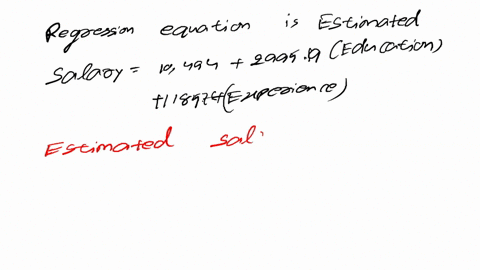 Regression equation is Estimated
Salary = 10,494 + (Education)
+ (Experience)
Estimated sal